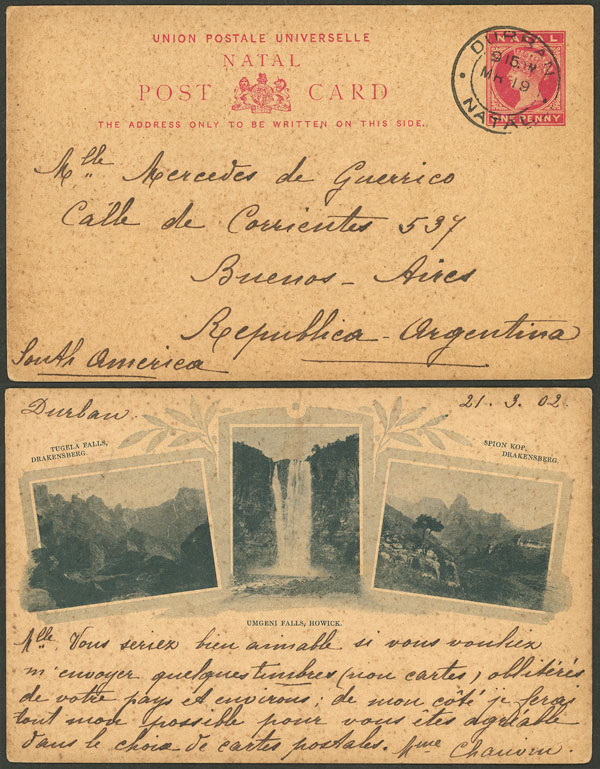 UNION POSTALE UNIVERSELLE
NATAL
POST CARD
THE ADDRESS ONLY TO BE WRITTEN ON THIS SIDE.
NATAL
ONE PENNY
DURBAN
MR 19
NATAL
Mlle Mercedes de Guerrico
Calle de Corrientes 537
Buenos - Aires
Republica - Argentina
South America
Durban
21. 3. 02
TUGELA FALLS,
DRAKENSBERG.
SPION KOP,
DRAKENSBERG.
UMGENI FALLS, HOWICK.
Mlle. Vous seriez bien aimable si vous vouliez
m'envoyer quelques timbres (non cartes) oblitérés
de votre pays et environs; de mon côté je ferai
tout mon possible pour vous êtes agréable
dans le choix de cartes postales. Mme